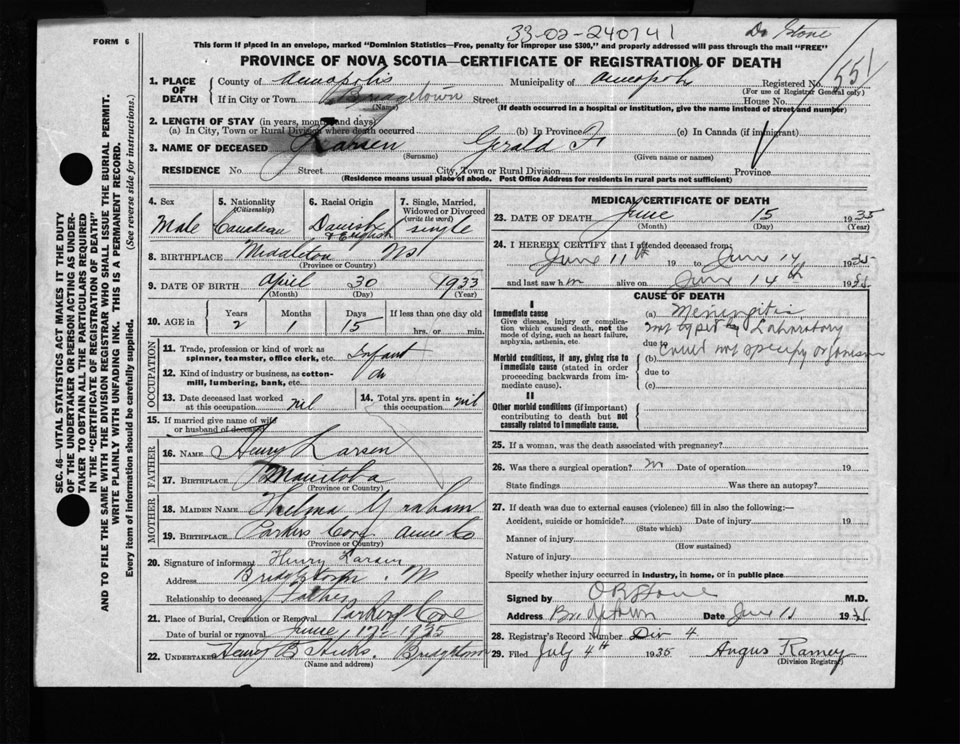 33-02-240741
Dr Stone
FORM 6
This form if placed in an envelope, marked "Dominion Statistics—Free, penalty for improper use $300," and properly addressed will pass through the mail "FREE"
PROVINCE OF NOVA SCOTIA—CERTIFICATE OF REGISTRATION OF DEATH
551
SEC. 46—VITAL STATISTICS ACT MAKES IT THE DUTY OF THE UNDERTAKER OR PERSON ACTING AS UNDERTAKER TO OBTAIN ALL THE PARTICULARS REQUIRED IN THE "CERTIFICATE OF REGISTRATION OF DEATH" AND TO FILE THE SAME WITH THE DIVISION REGISTRAR WHO SHALL ISSUE THE BURIAL PERMIT.
WRITE PLAINLY WITH UNFADING INK. THIS IS A PERMANENT RECORD.
Every item of information should be carefully supplied. (See reverse side for instructions.)
1. PLACE OF DEATH
County of Annapolis Municipality of Annapolis Registered No.
(For use of Registrar General only)
If in City or Town Bridgetown Street House No.
(Name) (If death occurred in a hospital or institution, give the name instead of street and number)
2. LENGTH OF STAY (in years, months and days)
(a) In City, Town or Rural Division where death occurred (b) In Province (c) In Canada (if immigrant)
3. NAME OF DECEASED Larsen Gerald F
(Surname) (Given name or names)
RESIDENCE No. Street City, Town or Rural Division Province
(Residence means usual place of abode. Post Office Address for residents in rural parts not sufficient)
4. Sex Male
5. Nationality (Citizenship) Canadian
6. Racial Origin Danish & English
7. Single, Married, Widowed or Divorced (write the word) single
8. BIRTHPLACE Middleton NS
(Province or Country)
9. DATE OF BIRTH April 30 1933
(Month) (Day) (Year)
10. AGE in Years Months Days If less than one day old
2 1 15 hrs. or min.
OCCUPATION
11. Trade, profession or kind of work as spinner, teamster, office clerk, etc. Infant
12. Kind of industry or business, as cotton-mill, lumbering, bank, etc. do
13. Date deceased last worked at this occupation nil
14. Total yrs. spent in this occupation nil
15. If married give name of wife or husband of deceased
FATHER
16. NAME Henry Larsen
17. BIRTHPLACE Manitoba
(Province or Country)
MOTHER
18. MAIDEN NAME Thelma Graham
19. BIRTHPLACE Parkers Cove Anna Co
(Province or Country)
20. Signature of informant Henry Larsen
Address Bridgetown
Relationship to deceased Father
21. Place of Burial, Cremation or Removal Parkers Cove
Date of burial or removal June 17 1935
22. Undertaker Henry B Hicks. Bridgetown
(Name and address)
MEDICAL CERTIFICATE OF DEATH
23. DATE OF DEATH June 15 1935
(Month) (Day) (Year)
24. I HEREBY CERTIFY that I attended deceased from:
June 11th 19 to June 14 1935
and last saw him alive on June 14th 1935
CAUSE OF DEATH
I
Immediate cause
Give disease, injury or complication which caused death, not the mode of dying, such as heart failure, asphyxia, asthenia, etc.
(a) Meningitis
not typed by Laboratory
due to
Could not specify organism
Morbid conditions, if any, giving rise to immediate cause (stated in order proceeding backwards from immediate cause).
(b)
due to
(c)
II
Other morbid conditions (if important) contributing to death but not causally related to immediate cause.
25. If a woman, was the death associated with pregnancy?
26. Was there a surgical operation? no Date of operation 19
State findings Was there an autopsy?
27. If death was due to external causes (violence) fill in also the following:—
Accident, suicide or homicide? Date of injury 19
(State which)
Manner of injury
(How sustained)
Nature of injury
Specify whether injury occurred in industry, in home, or in public place
Signed by M.D.
Address Bridgetown Date June 19
28. Registrar's Record Number Div 4
29. Filed July 4th 1935 Angus Ramey
(Division Registrar)